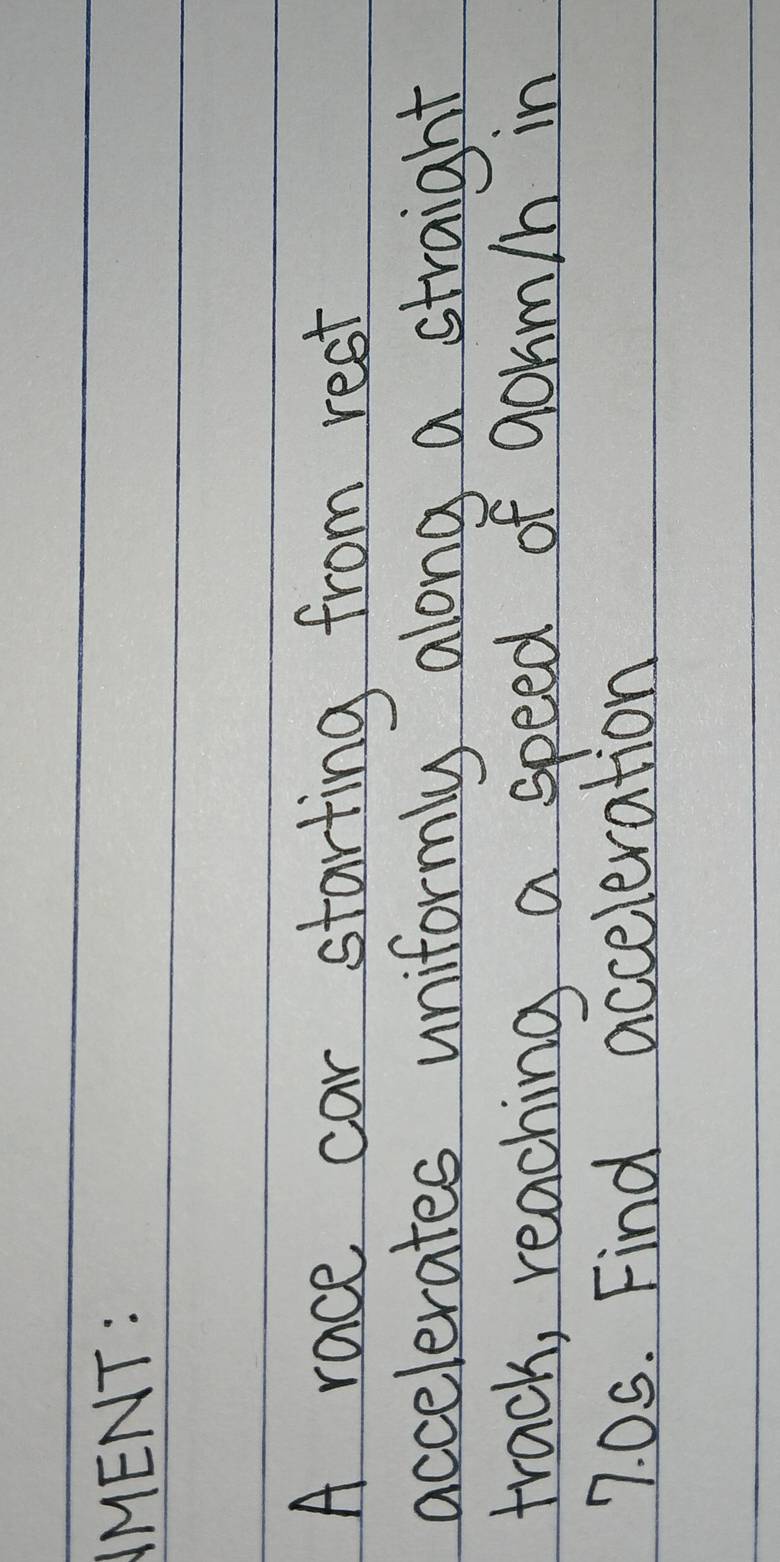 NMENT:
A race car starting from rest
accelerates uniformly along a straight
track, reaching a speed of 90km/h in
7.0s. Find acceleration